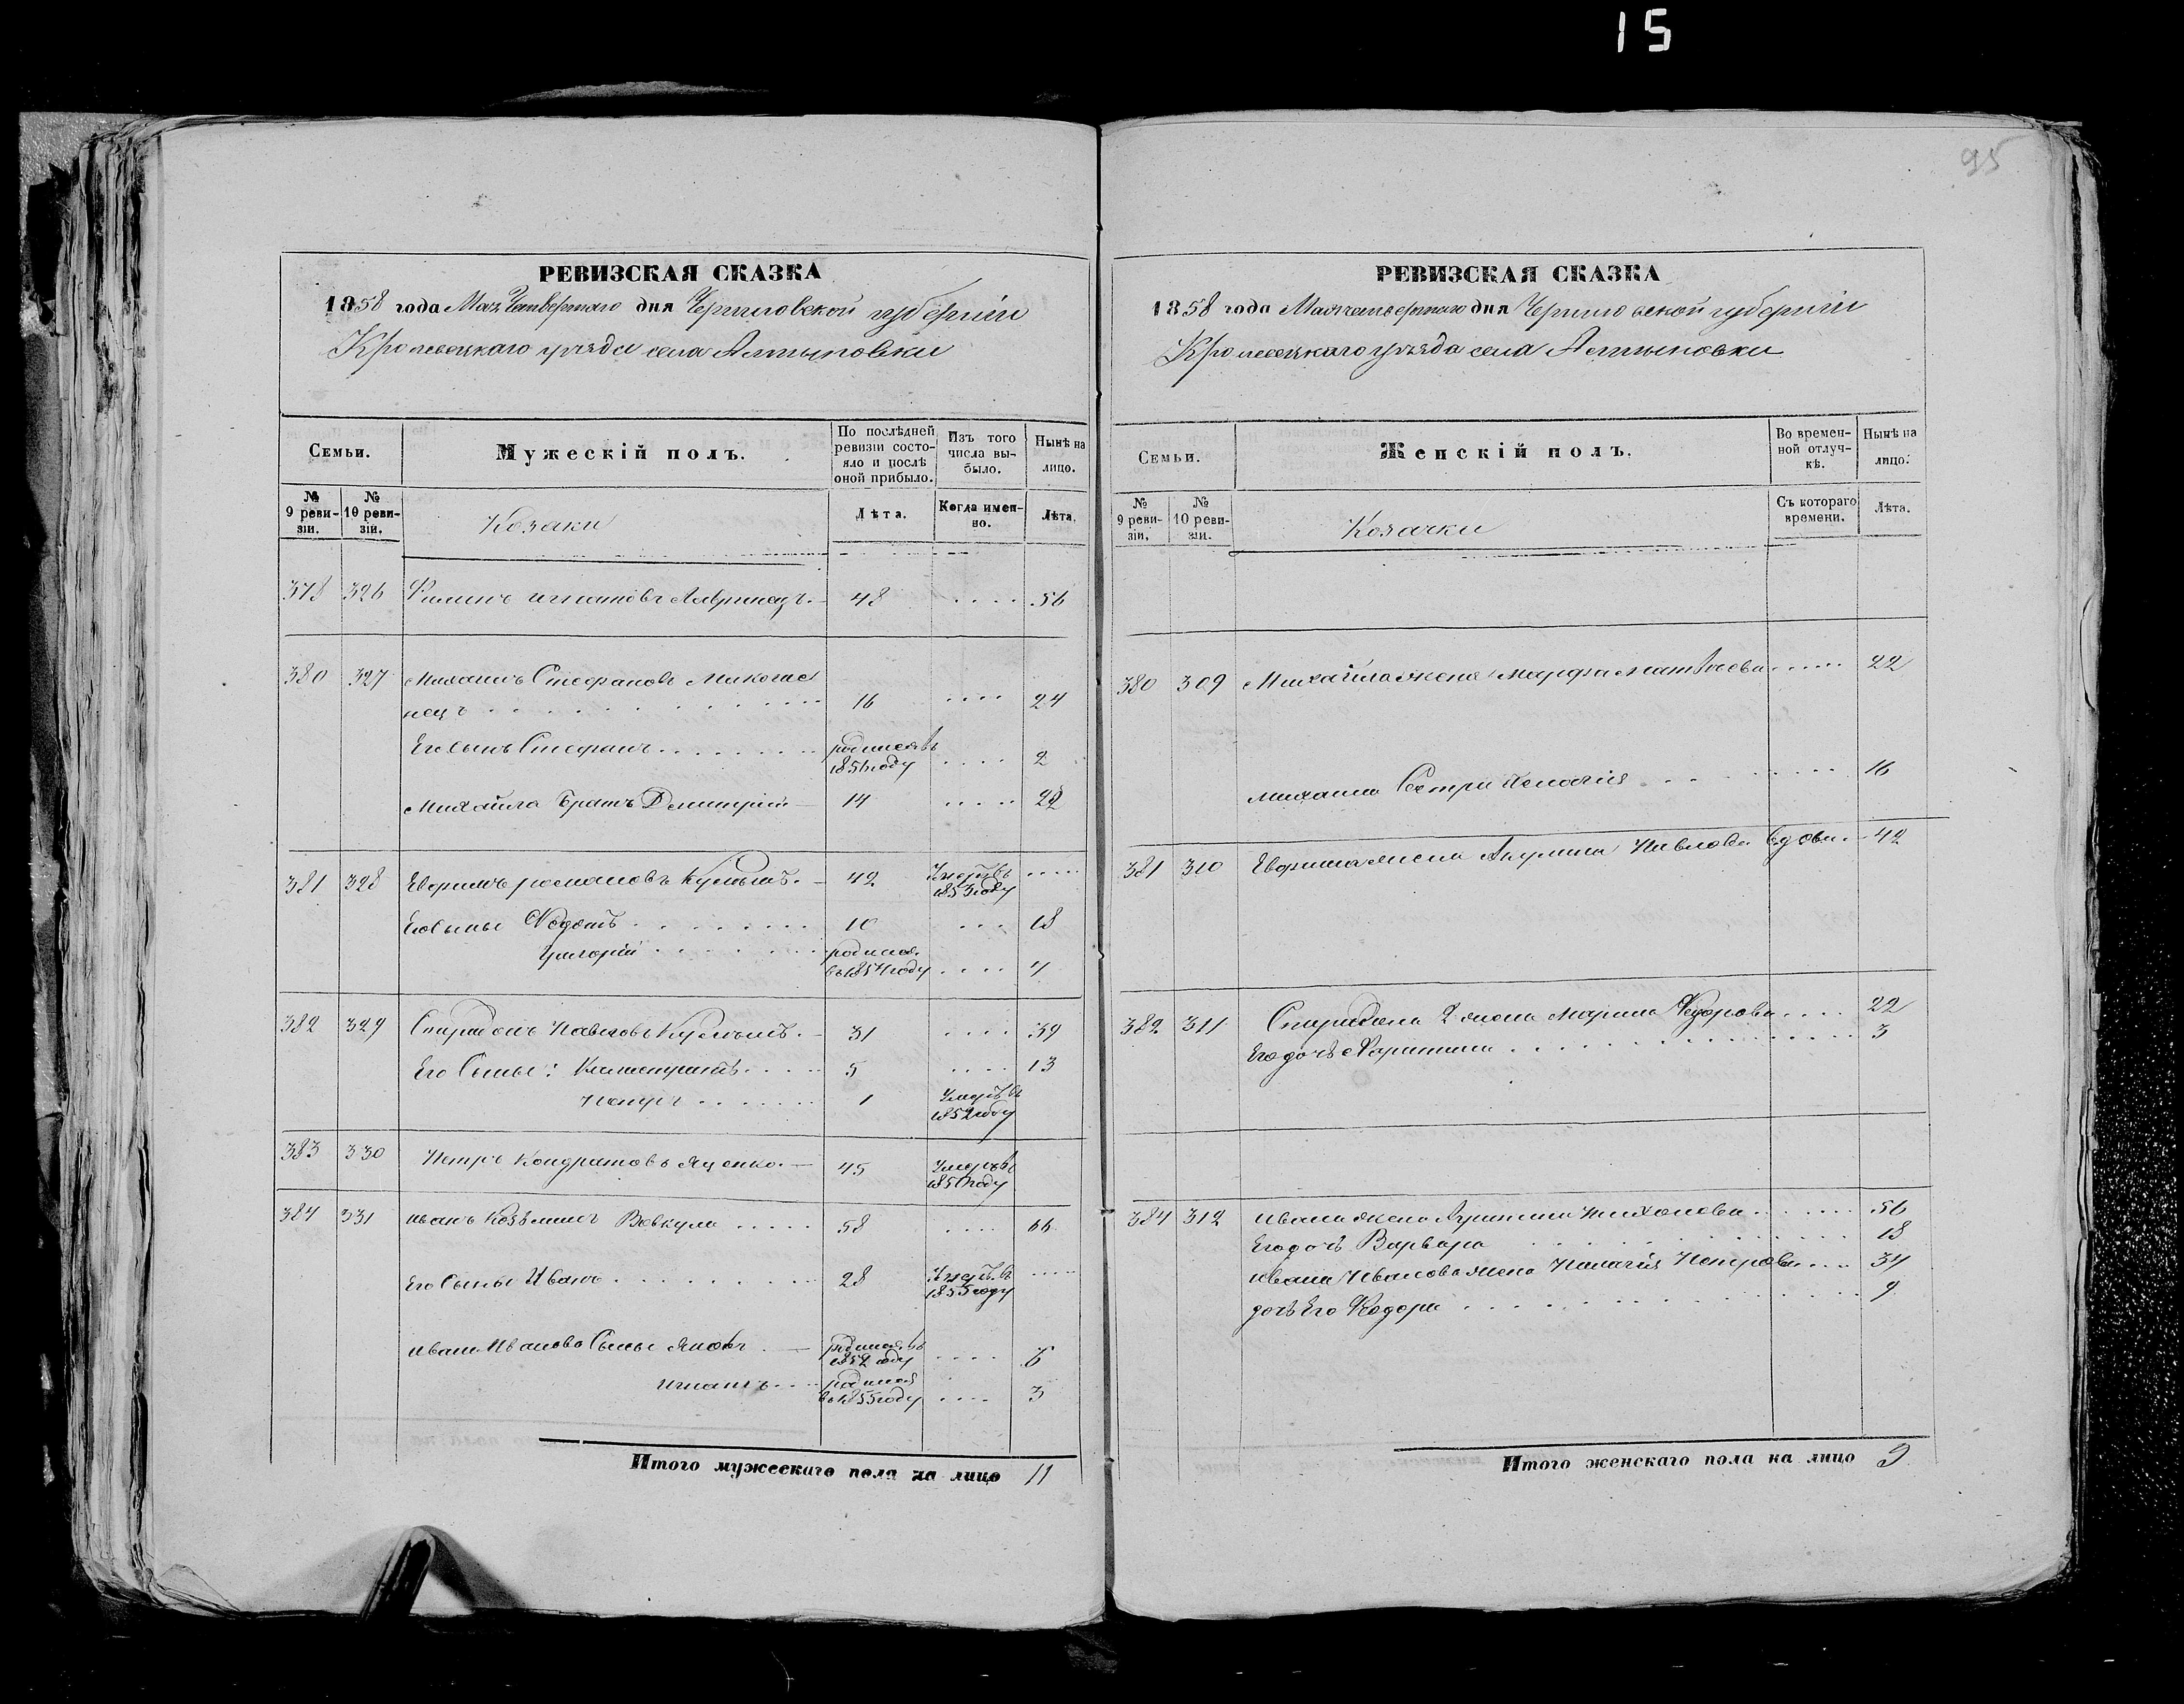 15
95
РЕВИЗСКАЯ СКАЗКА
1858 года Мая Четвертаго дня Черниговской губерніи
Кролевецкаго уезда села Алтыновки
Семьи.
Мужескій полъ.
По послѣдней ревизіи состояло и послѣ оной прибыло.
Изъ того числа выбыло.
Нынѣ на лицо.
№ 9 ревизіи.
№ 10 ревизіи.
Козаки
Лѣта.
Когда именно.
Лѣта.
378 326 Филипъ Игнатовъ 48 .... 56
380 327 Михаилъ Стефановъ
нецъ 16 .... 24
Его сынъ Стефанъ родился въ 1856 году .... 2
Михайла Братъ Димитрій 14 .... 22
381 328 Романовъ 42 Умеръ въ 1853 году ....
Его сыны Федотъ 10 ... 18
Григорій родился въ 1854 году .... 4
382 329 Спиридонъ Павловъ 31 .... 39
Его Сыны: 5 .... 13
1 Умеръ въ 1852 году
383 330 Петръ Кондратовъ Яценко 45 Умеръ въ году
384 331 Иванъ Козьминъ Вовкула 58 .... 66
Его Сыны Иванъ 28 Умеръ въ 1855 году ....
Ивана Иванова Сыны Яковъ родился въ 1852 году .... 6
Игнатъ родился въ 1855 году .... 3
Итого мужескаго пола на лицо 11
РЕВИЗСКАЯ СКАЗКА
1858 года Мая четвертаго дня Черниговской губерніи
Кролевецкаго уезда села Алтыновки
Семьи.
Женскій полъ.
Во временной отлучкѣ.
Нынѣ на лицо.
№ 9 ревизіи.
№ 10 ревизіи.
Козачки
Съ котораго времени.
Лѣта.
380 309 Михайла жена Марфа Матвѣева ..... 22
Михаила Сестра Пелагія 16
381 310 жена Акулина Павлова вдова 42
382 311 Спиридона 2 жена Марина Федорова .... 22
Его дочь 3
384 312 Ивана жена Тихонова 56
Его дочь Варвара 18
Ивана Иванова жена Пелагія Петрова 34
дочь Его Федора 9
Итого женскаго пола на лицо 9